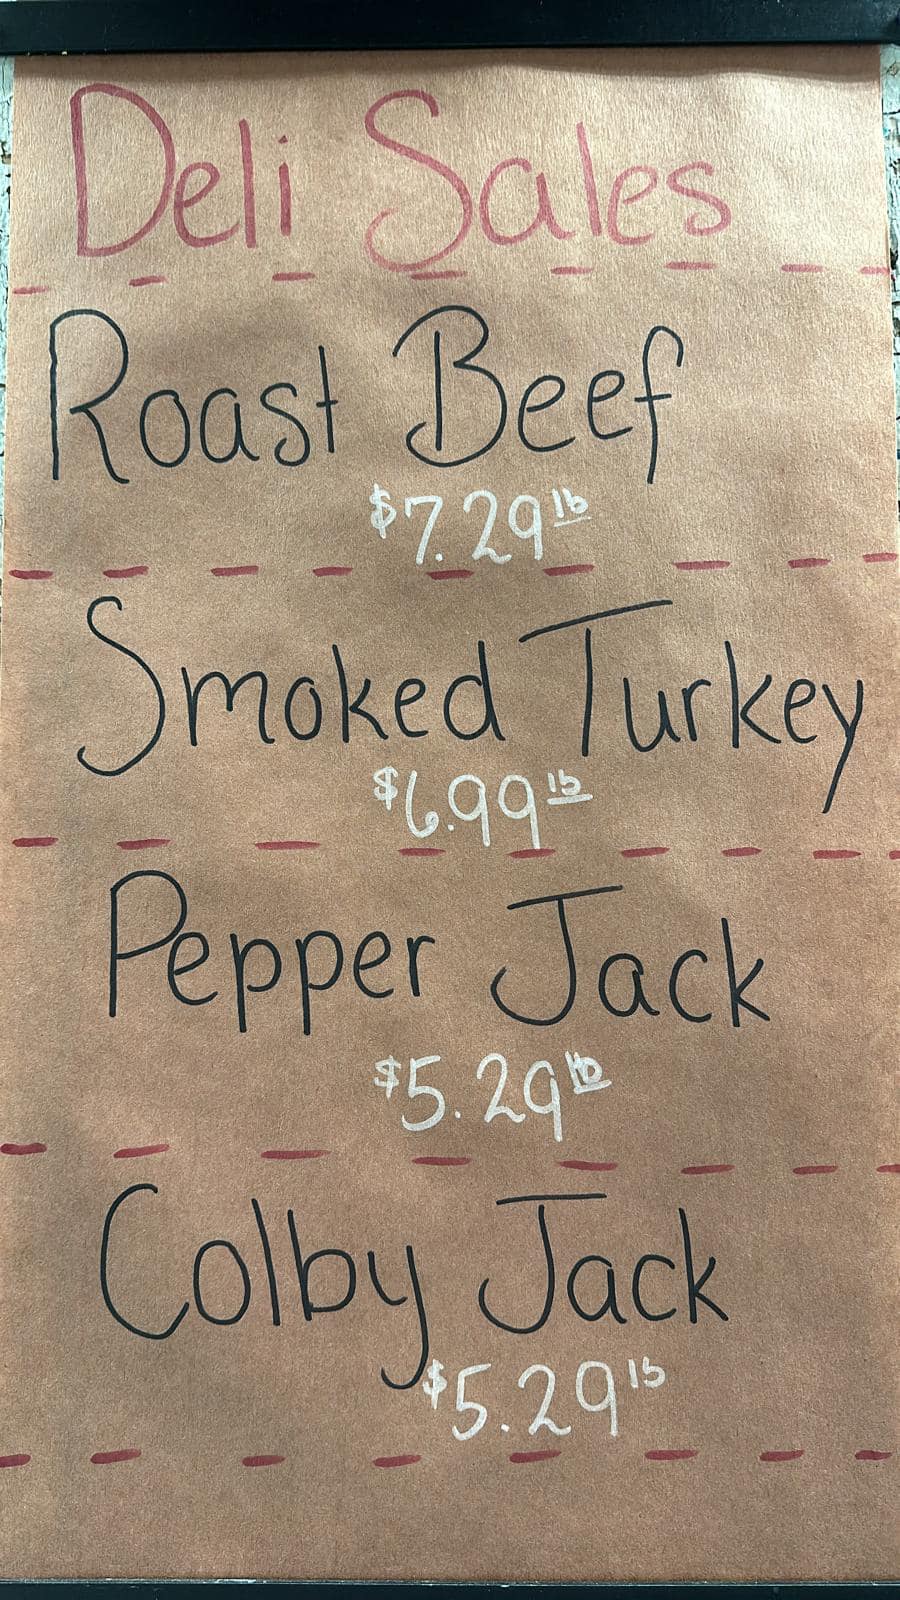 Deli Sales
Roast Beef
$7.29 lb
Smoked Turkey
$6.99 lb
Pepper Jack
$5.29 lb
Colby Jack
$5.29 lb